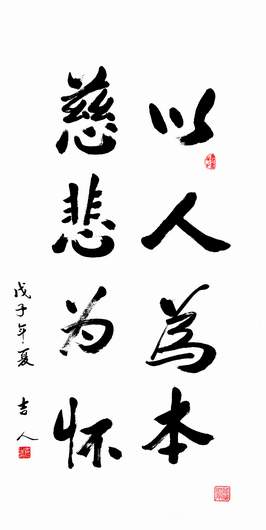 以人為本
慈悲为怀
戊子年夏 吉人